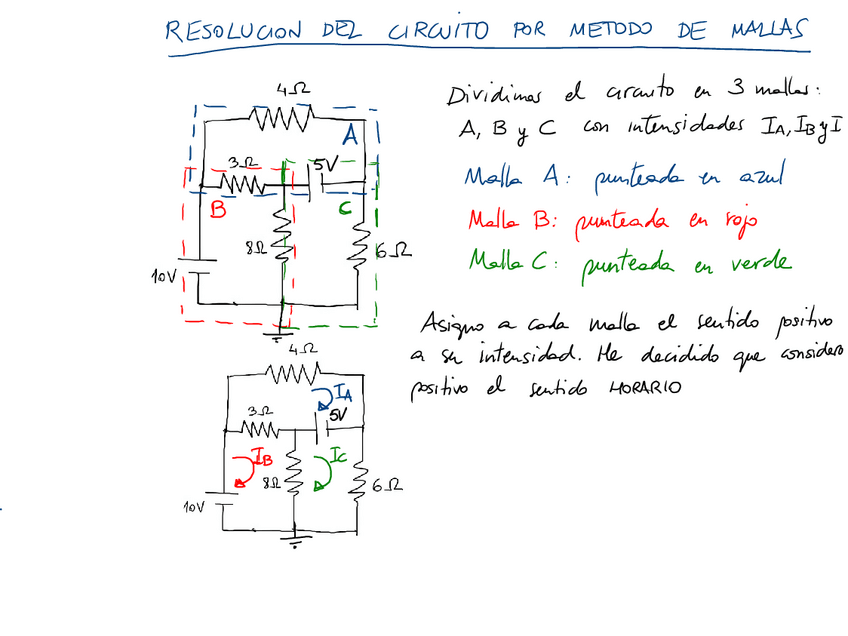 RESOLUCION DEL CIRCUITO POR METODO DE MALLAS
4Ω
A
3Ω
5V
B
C
8Ω
6Ω
10V
Dividimos el circuito en 3 mallas:
A, B y C con intensidades IA, IB y I
Malla A: punteada en azul
Malla B: punteada en rojo
Malla C: punteada en verde
Asigno a cada malla el sentido positivo
a su intensidad. He decidido que considero
positivo el sentido HORARIO
4Ω
IA
3Ω
5V
IB
IC
8Ω
6Ω
10V